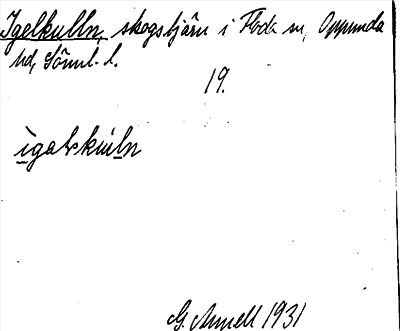 Igelkulln, skogstjärn i Floda sn, Oppunda
hd, Södml. l.
19.
ìgalskúln
G. Annell 1931